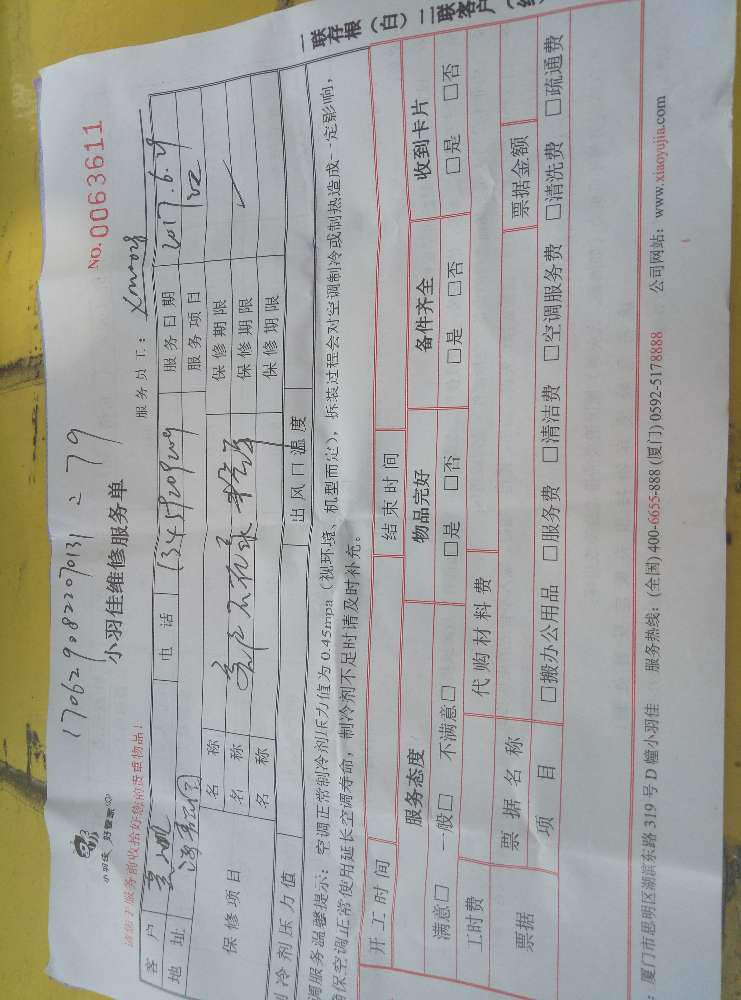 一联存根（白）二联客户（
NO.0063611
170629082207013127 79
小羽佳 好管家
小羽佳维修服务单
请您于服务前收拾好您的贵重物品！
服务员工：Xm0028
客户 电话 13459209209 服务日期 2017.6.29
地址 服务项目
保修项目 名称 保修期限
名称 保修期限
名称 保修期限
制冷剂压力值 出风口温度
调服务温馨提示：空调正常制冷剂压力值为0.45mpa（视环境、机型而定），拆装过程会对空调制冷或制热造成一定影响，
确保空调正常使用延长空调寿命，制冷剂不足时请及时补充。
开工时间 结束时间
服务态度 物品完好 备件齐全 收到卡片
满意□ 一般□ 不满意□ □是 □否 □是 □否 □是 □否
工时费 代购材料费
票据 票据名称 票据金额
项目 □搬办公用品 □服务费 □清洁费 □空调服务费 □清洗费 □疏通费
：厦门市思明区湖滨东路319号D幢小羽佳 服务热线：(全国)400-6655-888 (厦门)0592-5178888 公司网站：www.xiaoyujia.com